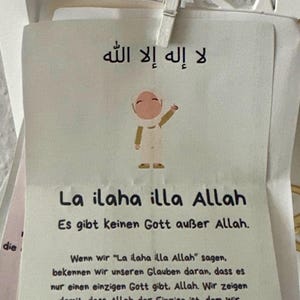 لا إله إلا الله
La ilaha illa Allah
Es gibt keinen Gott außer Allah.
Wenn wir "La ilaha illa Allah" sagen,
bekennen wir unseren Glauben daran, dass es
nur einen einzigen Gott gibt, Allah. Wir zeigen
damit, dass Allah der Einzige ist, dem wir
die